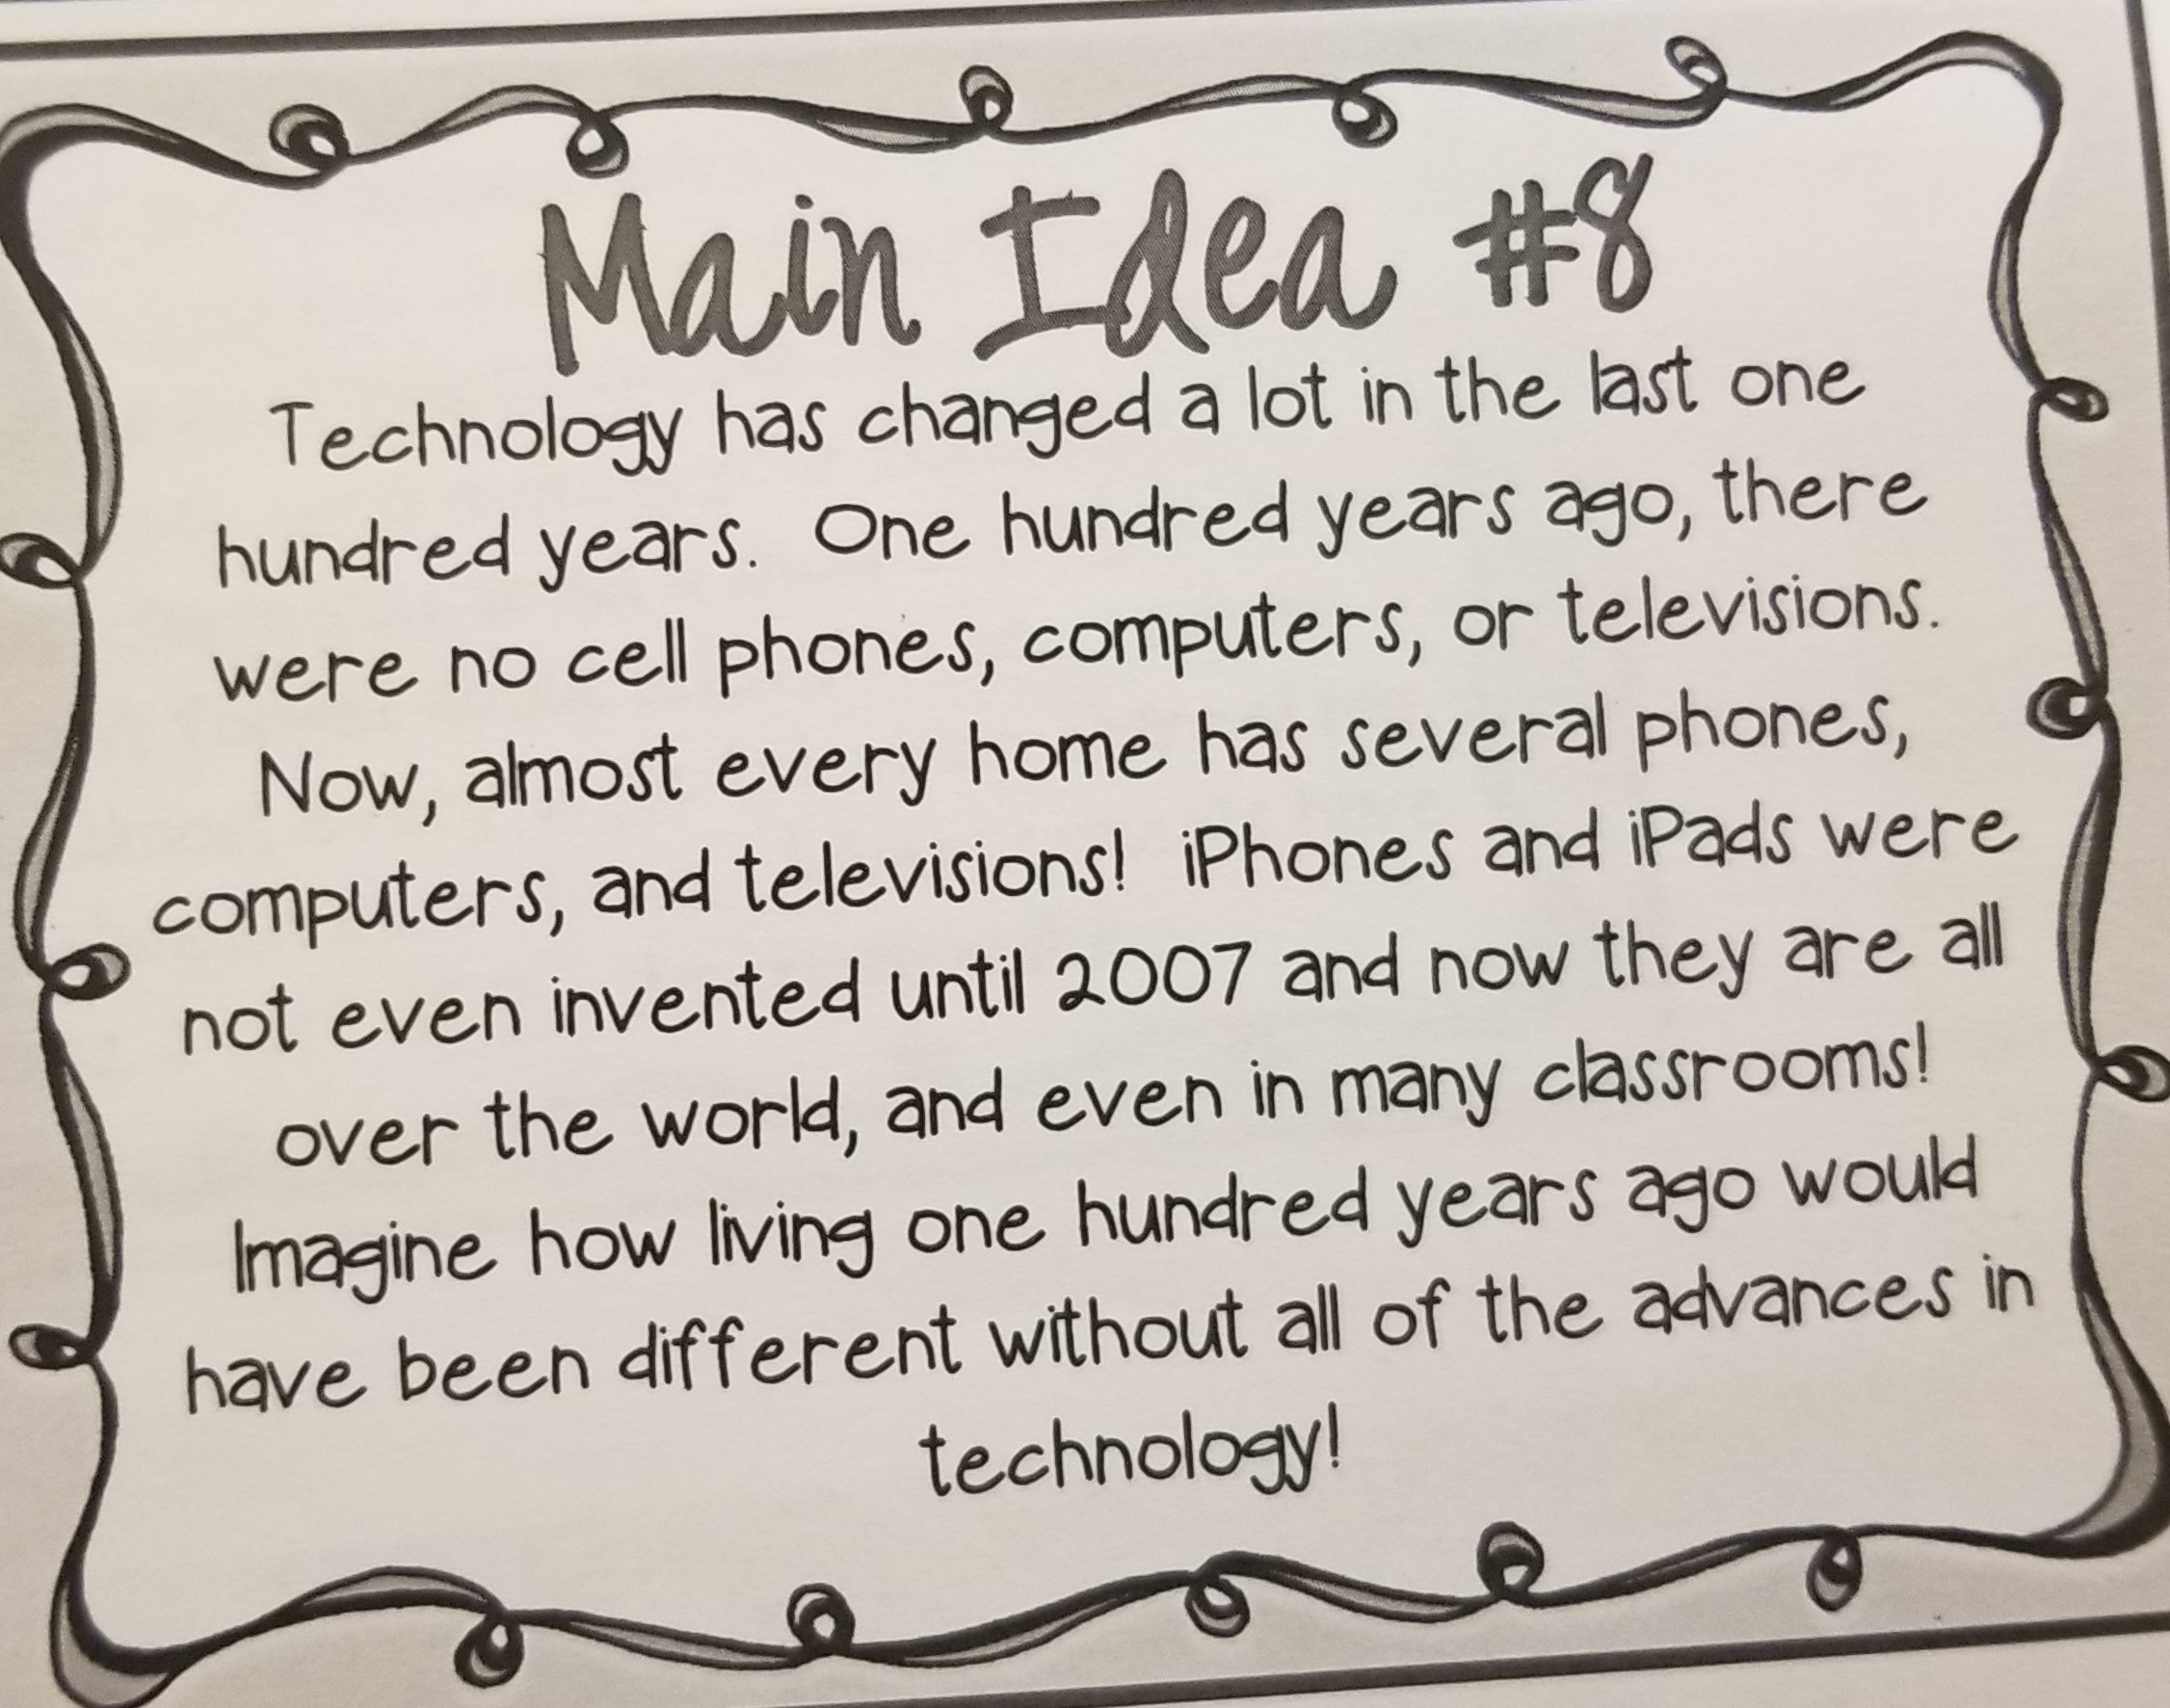 Main Idea #8
Technology has changed a lot in the last one
hundred years. One hundred years ago, there
were no cell phones, computers, or televisions.
Now, almost every home has several phones,
computers, and televisions! iPhones and iPads were
not even invented until 2007 and now they are all
over the world, and even in many classrooms!
Imagine how living one hundred years ago would
have been different without all of the advances in
technology!